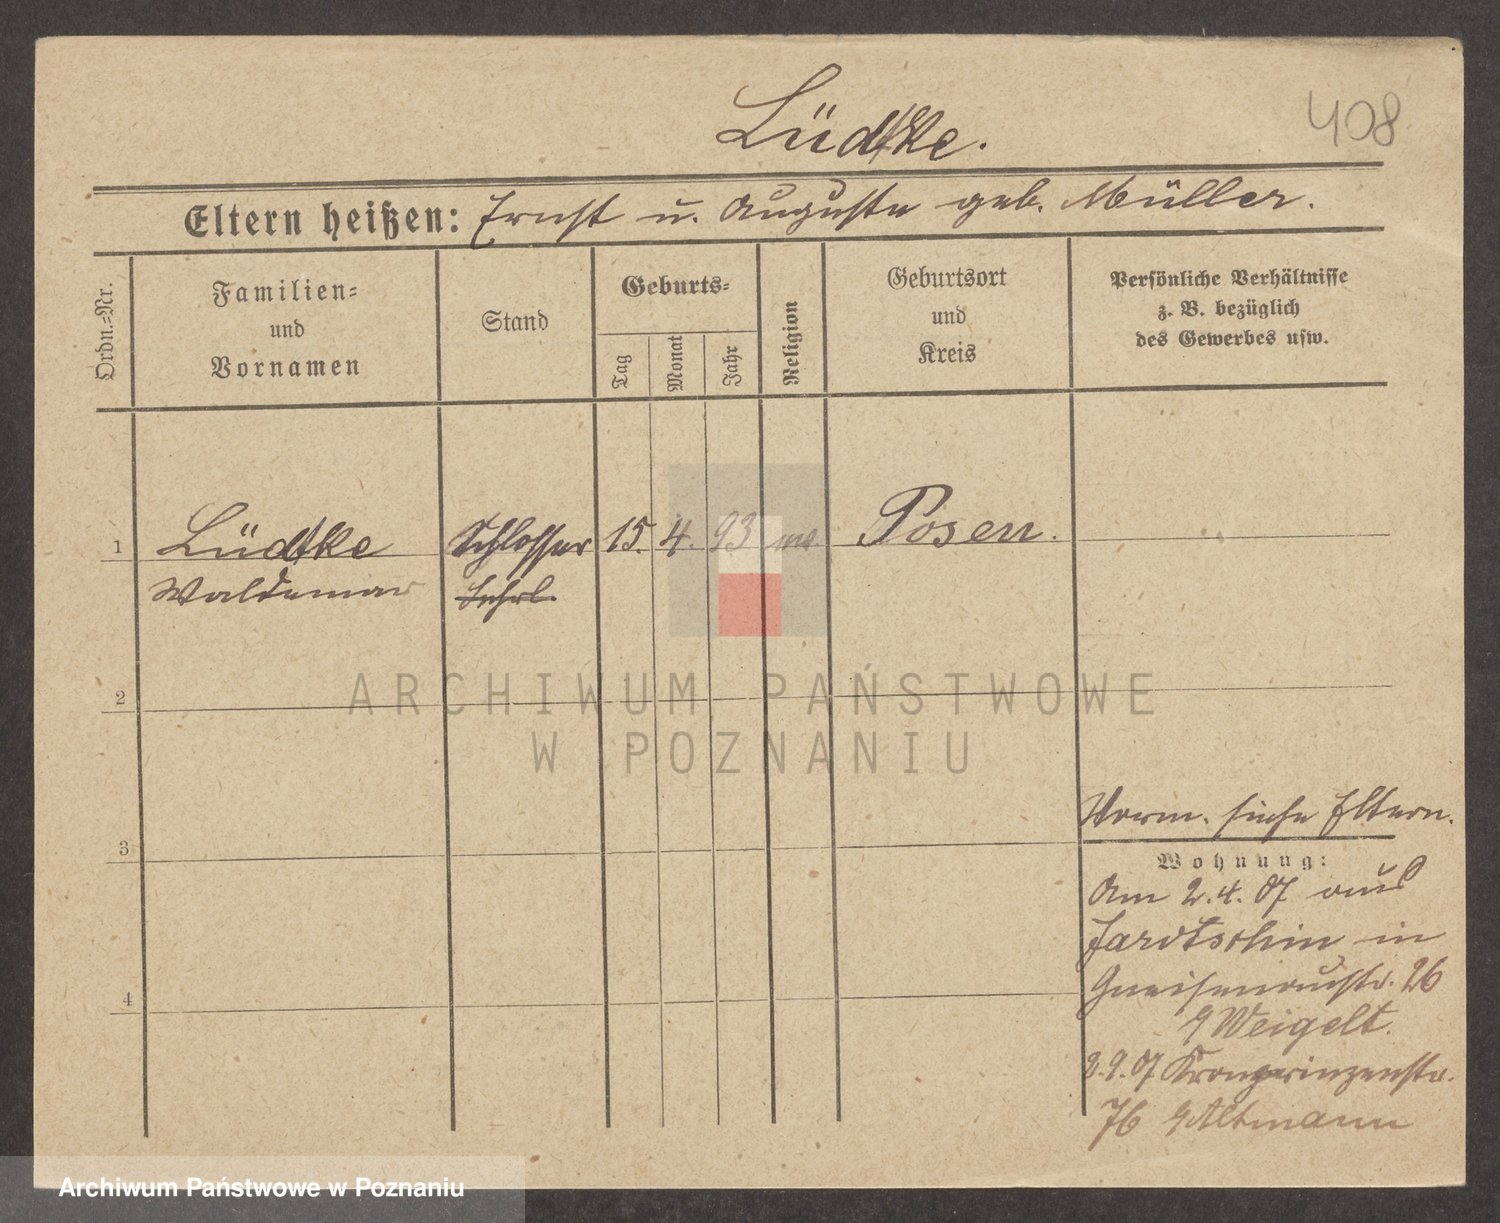 408
Lüdtke.
Eltern heißen: Ernst u. Auguste geb. Müller.
Ordn.=Nr.
Familien=
und
Vornamen
Stand
Geburts=
Tag
Monat
Jahr
Religion
Geburtsort
und
Kreis
Persönliche Verhältnisse
z. B. bezüglich
des Gewerbes usw.
1 Lüdtke Schlosser 15. 4. 93 Posen.
Waldemar Lehrl.
2
ARCHIWUM PAŃSTWOWE
W POZNANIU
3
4
Vorm. siehe Eltern.
Wohnung:
Am 2.4.07 aus
Jarotschin in
Gneisenaustr. 26
Weigelt.
2.9.07 Kronprinzenstr.
76 Altmann
Archiwum Państwowe w Poznaniu